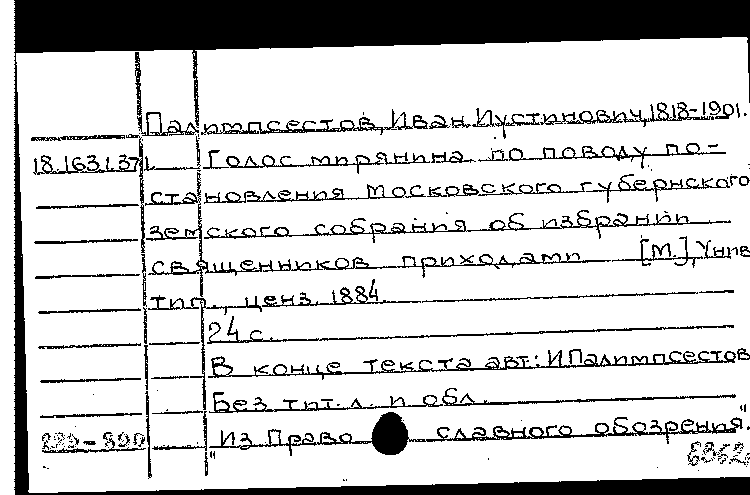 Палимпсестов, Иван Иустинович, 1818-1901.
18.163.1.371. Голос мирянина по поводу по-
становления Московского губернского
земского собрания об избрании
священников приходами [М.], Унив.
тип., ценз. 1884.
24 с.
В конце текста авт.: И Палимпсестов
Без тит. л. и обл.
"Из Право славного обозрения".